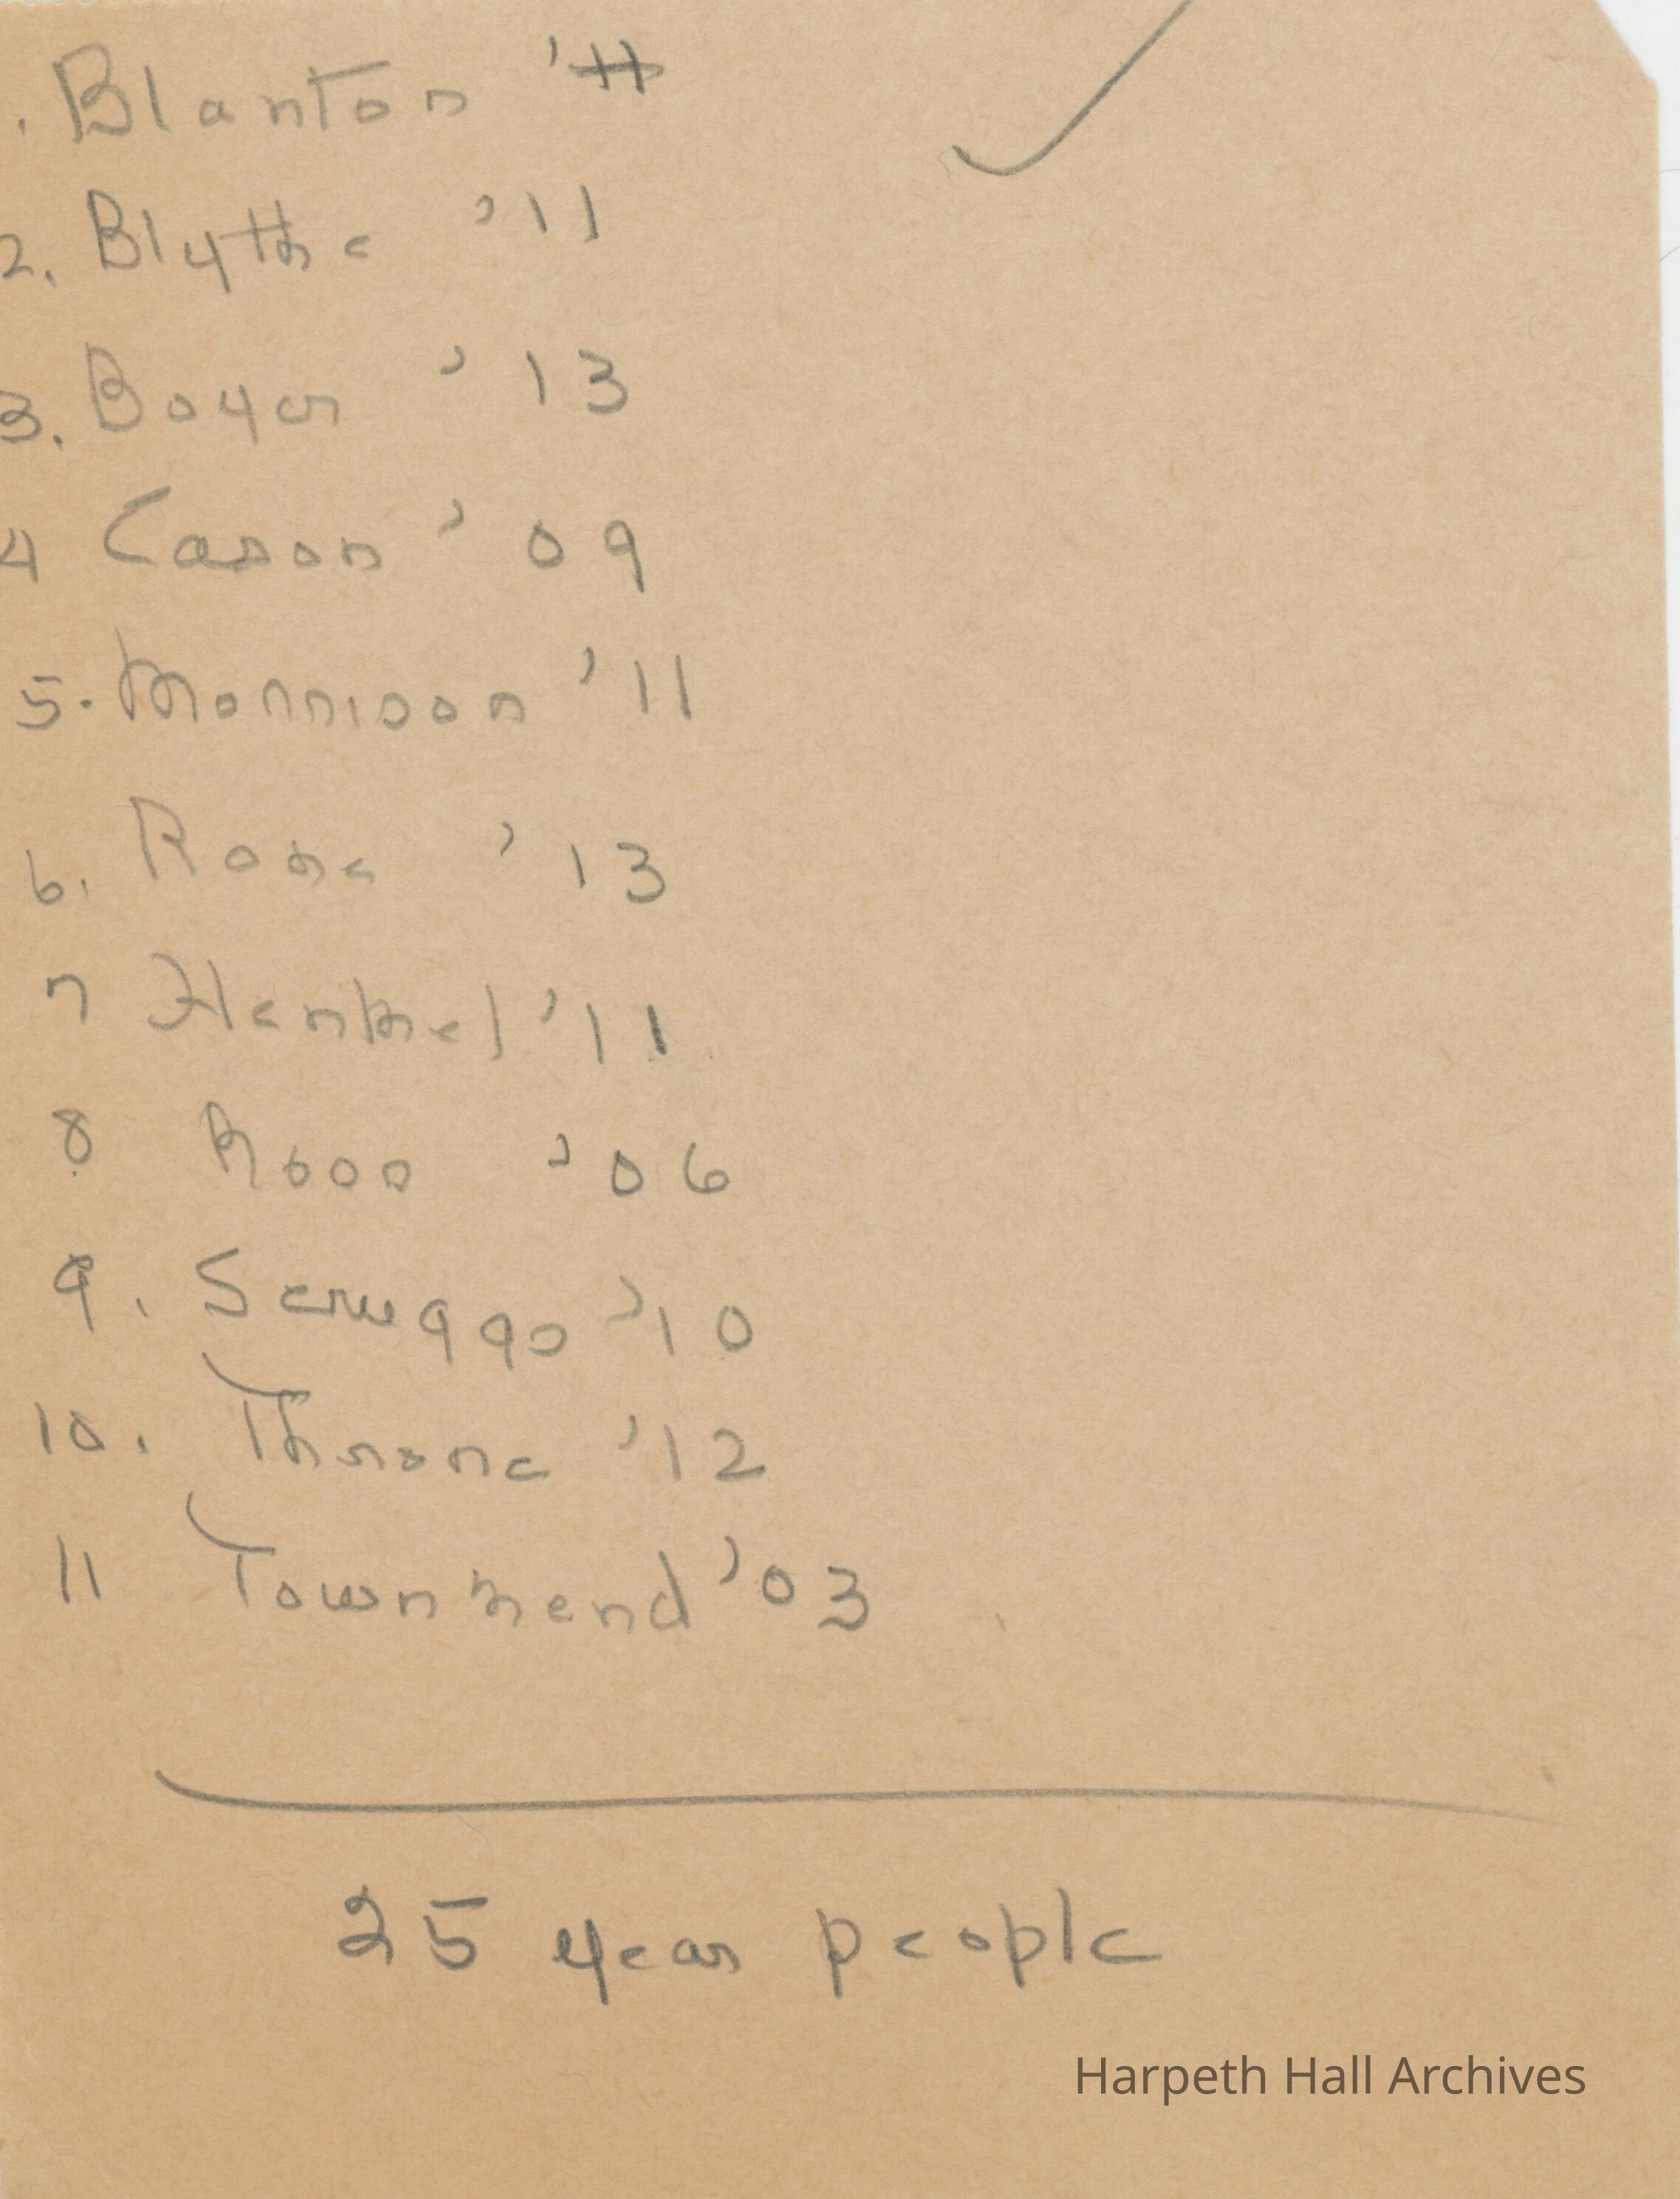 . Blanton '11
2. Blythe '11
3. Boyer '13
4 Cason '09
5. Morrison '11
6. Rone '13
7 Henkel '11
8 Ross '06
9. Scruggs '10
10. Throne '12
11 '03
25 year people
Harpeth Hall Archives